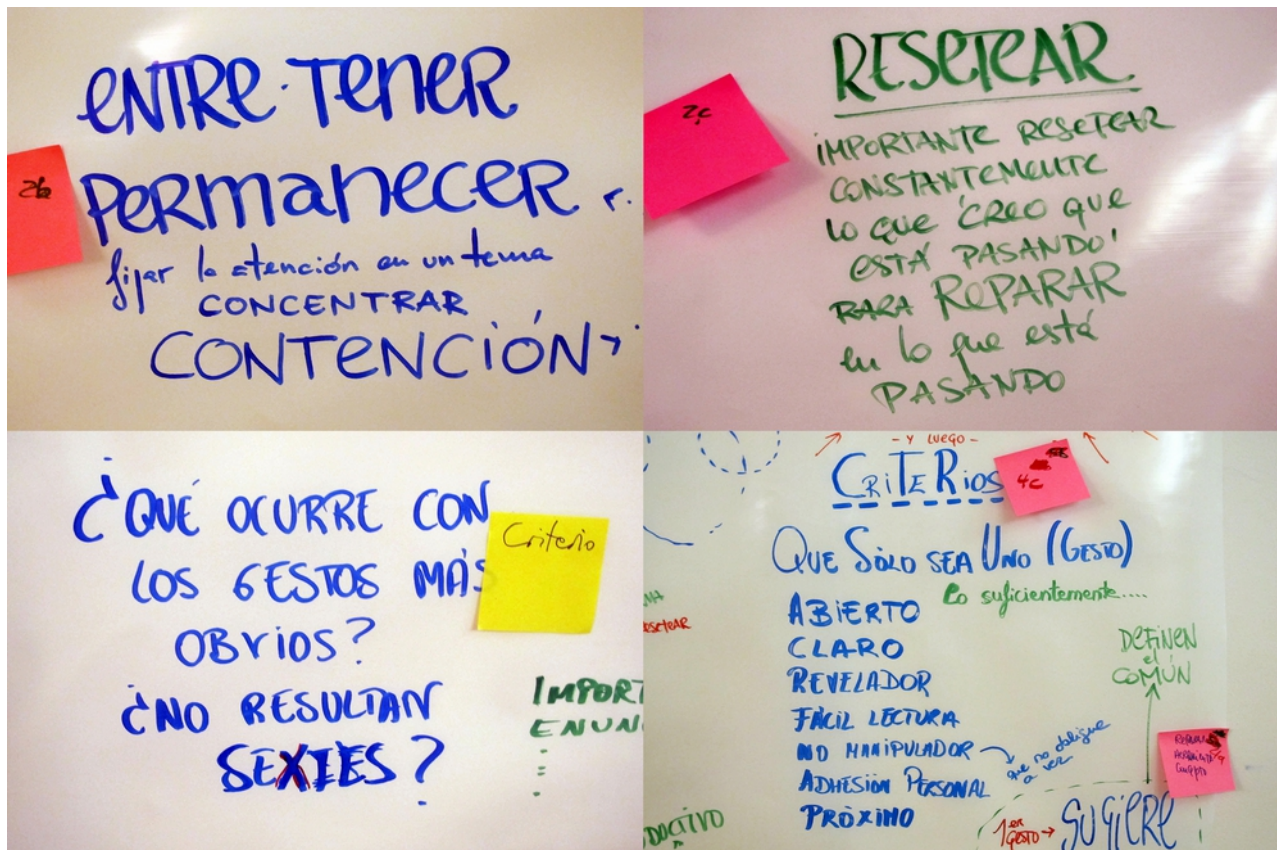 ENTRE·TENER
2b
PERMANECER
fijar la atención en un tema
CONCENTRAR
CONTENCIÓN
RESETEAR
2c
IMPORTANTE RESETEAR
CONSTANTEMENTE
lo que 'CREO que
ESTÁ PASANDO'
PARA REPARAR
en lo que está
PASANDO
¿QUÉ OCURRE CON
LOS GESTOS MÁS
OBVIOS?
¿NO RESULTAN
SEXIES?
Criterio
IMPORT
ENUN
- Y LUEGO -
CRITERIOS
4c
QUE SÓLO SEA UNO (GESTO)
Lo suficientemente....
ABIERTO
CLARO
REVELADOR
FÁCIL LECTURA
NO MANIPULADOR
que no obligue
a ver
ADHESIÓN PERSONAL
PRÓXIMO
RESETEAR
DEFINEN
el
COMÚN
1er
GESTO → SUGIERE